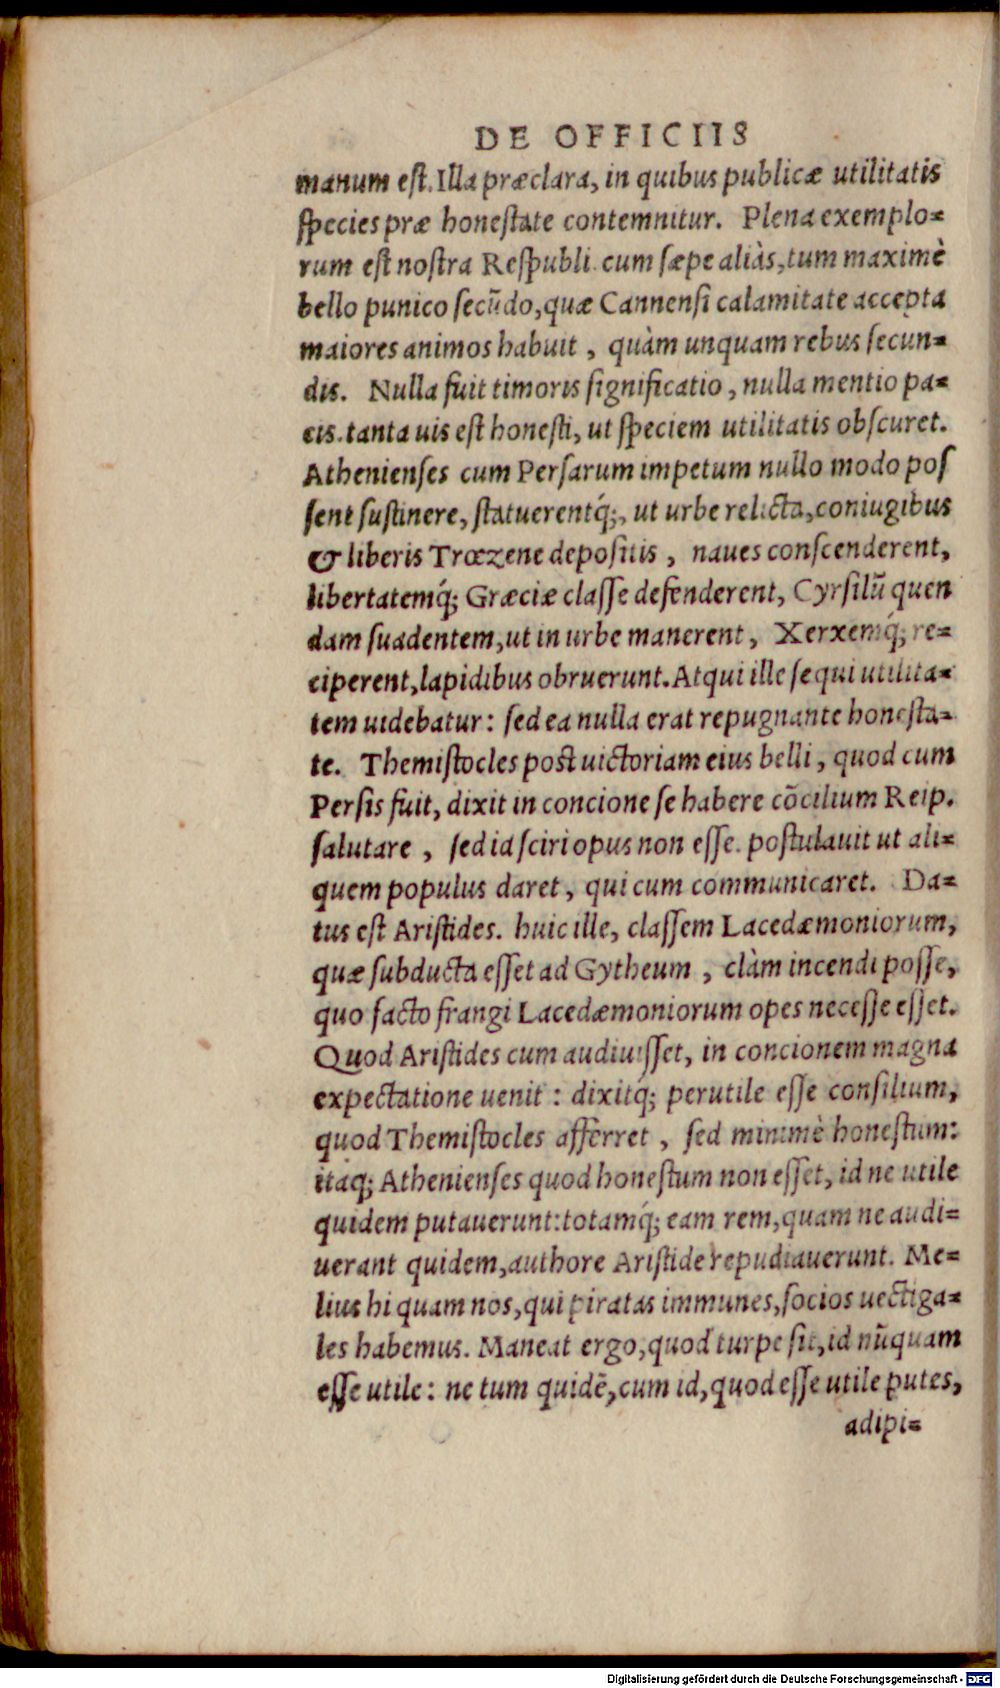 DE OFFICIIS
manum est. Illa præclara, in quibus publicæ utilitatis
species præ honestate contemnitur. Plena exemplo=
rum est nostra Respubli. cum sæpe aliàs, tum maximè
bello punico secũdo, quæ Cannensi calamitate accepta
maiores animos habuit, quàm unquam rebus secun=
dis. Nulla fuit timoris significatio, nulla mentio pa=
cis. tanta uis est honesti, ut speciem utilitatis obscuret.
Athenienses cum Persarum impetum nullo modo pos
sent sustinere, statuerentq́;, ut urbe relicta, coniugibus
& liberis Trœzene depositis, naues conscenderent,
libertatemq́; Græciæ classe defenderent, Cyrsilũ quen
dam suadentem, ut in urbe manerent, Xerxemq́; re=
ciperent, lapidibus obruerunt. Atqui ille sequi utilita=
tem uidebatur: sed ea nulla erat repugnante honesta=
te. Themistocles post uictoriam eius belli, quod cum
Persis fuit, dixit in concione se habere cõcilium Reip.
salutare, sed id sciri opus non esse. postulauit ut ali=
quem populus daret, qui cum communicaret. Da=
tus est Aristides. huic ille, classem Lacedæmoniorum,
quæ subducta esset ad Gytheum, clàm incendi posse,
quo facto frangi Lacedæmoniorum opes necesse esset.
Quod Aristides cum audiuisset, in concionem magna
expectatione uenit: dixitq́; perutile esse consilium,
quod Themistocles afferret, sed minimè honestum:
itaq; Athenienses quod honestum non esset, id ne utile
quidem putauerunt: totamq́; eam rem, quam ne audi=
uerant quidem, authore Aristide repudiauerunt. Me=
lius hi quam nos, qui piratas immunes, socios uectiga=
les habemus. Maneat ergo, quod turpe sit, id nũquam
esse utile: ne tum quidẽ, cum id, quod esse utile putes,
adipi=
Digitalisierung gefördert durch die Deutsche Forschungsgemeinschaft - DFG